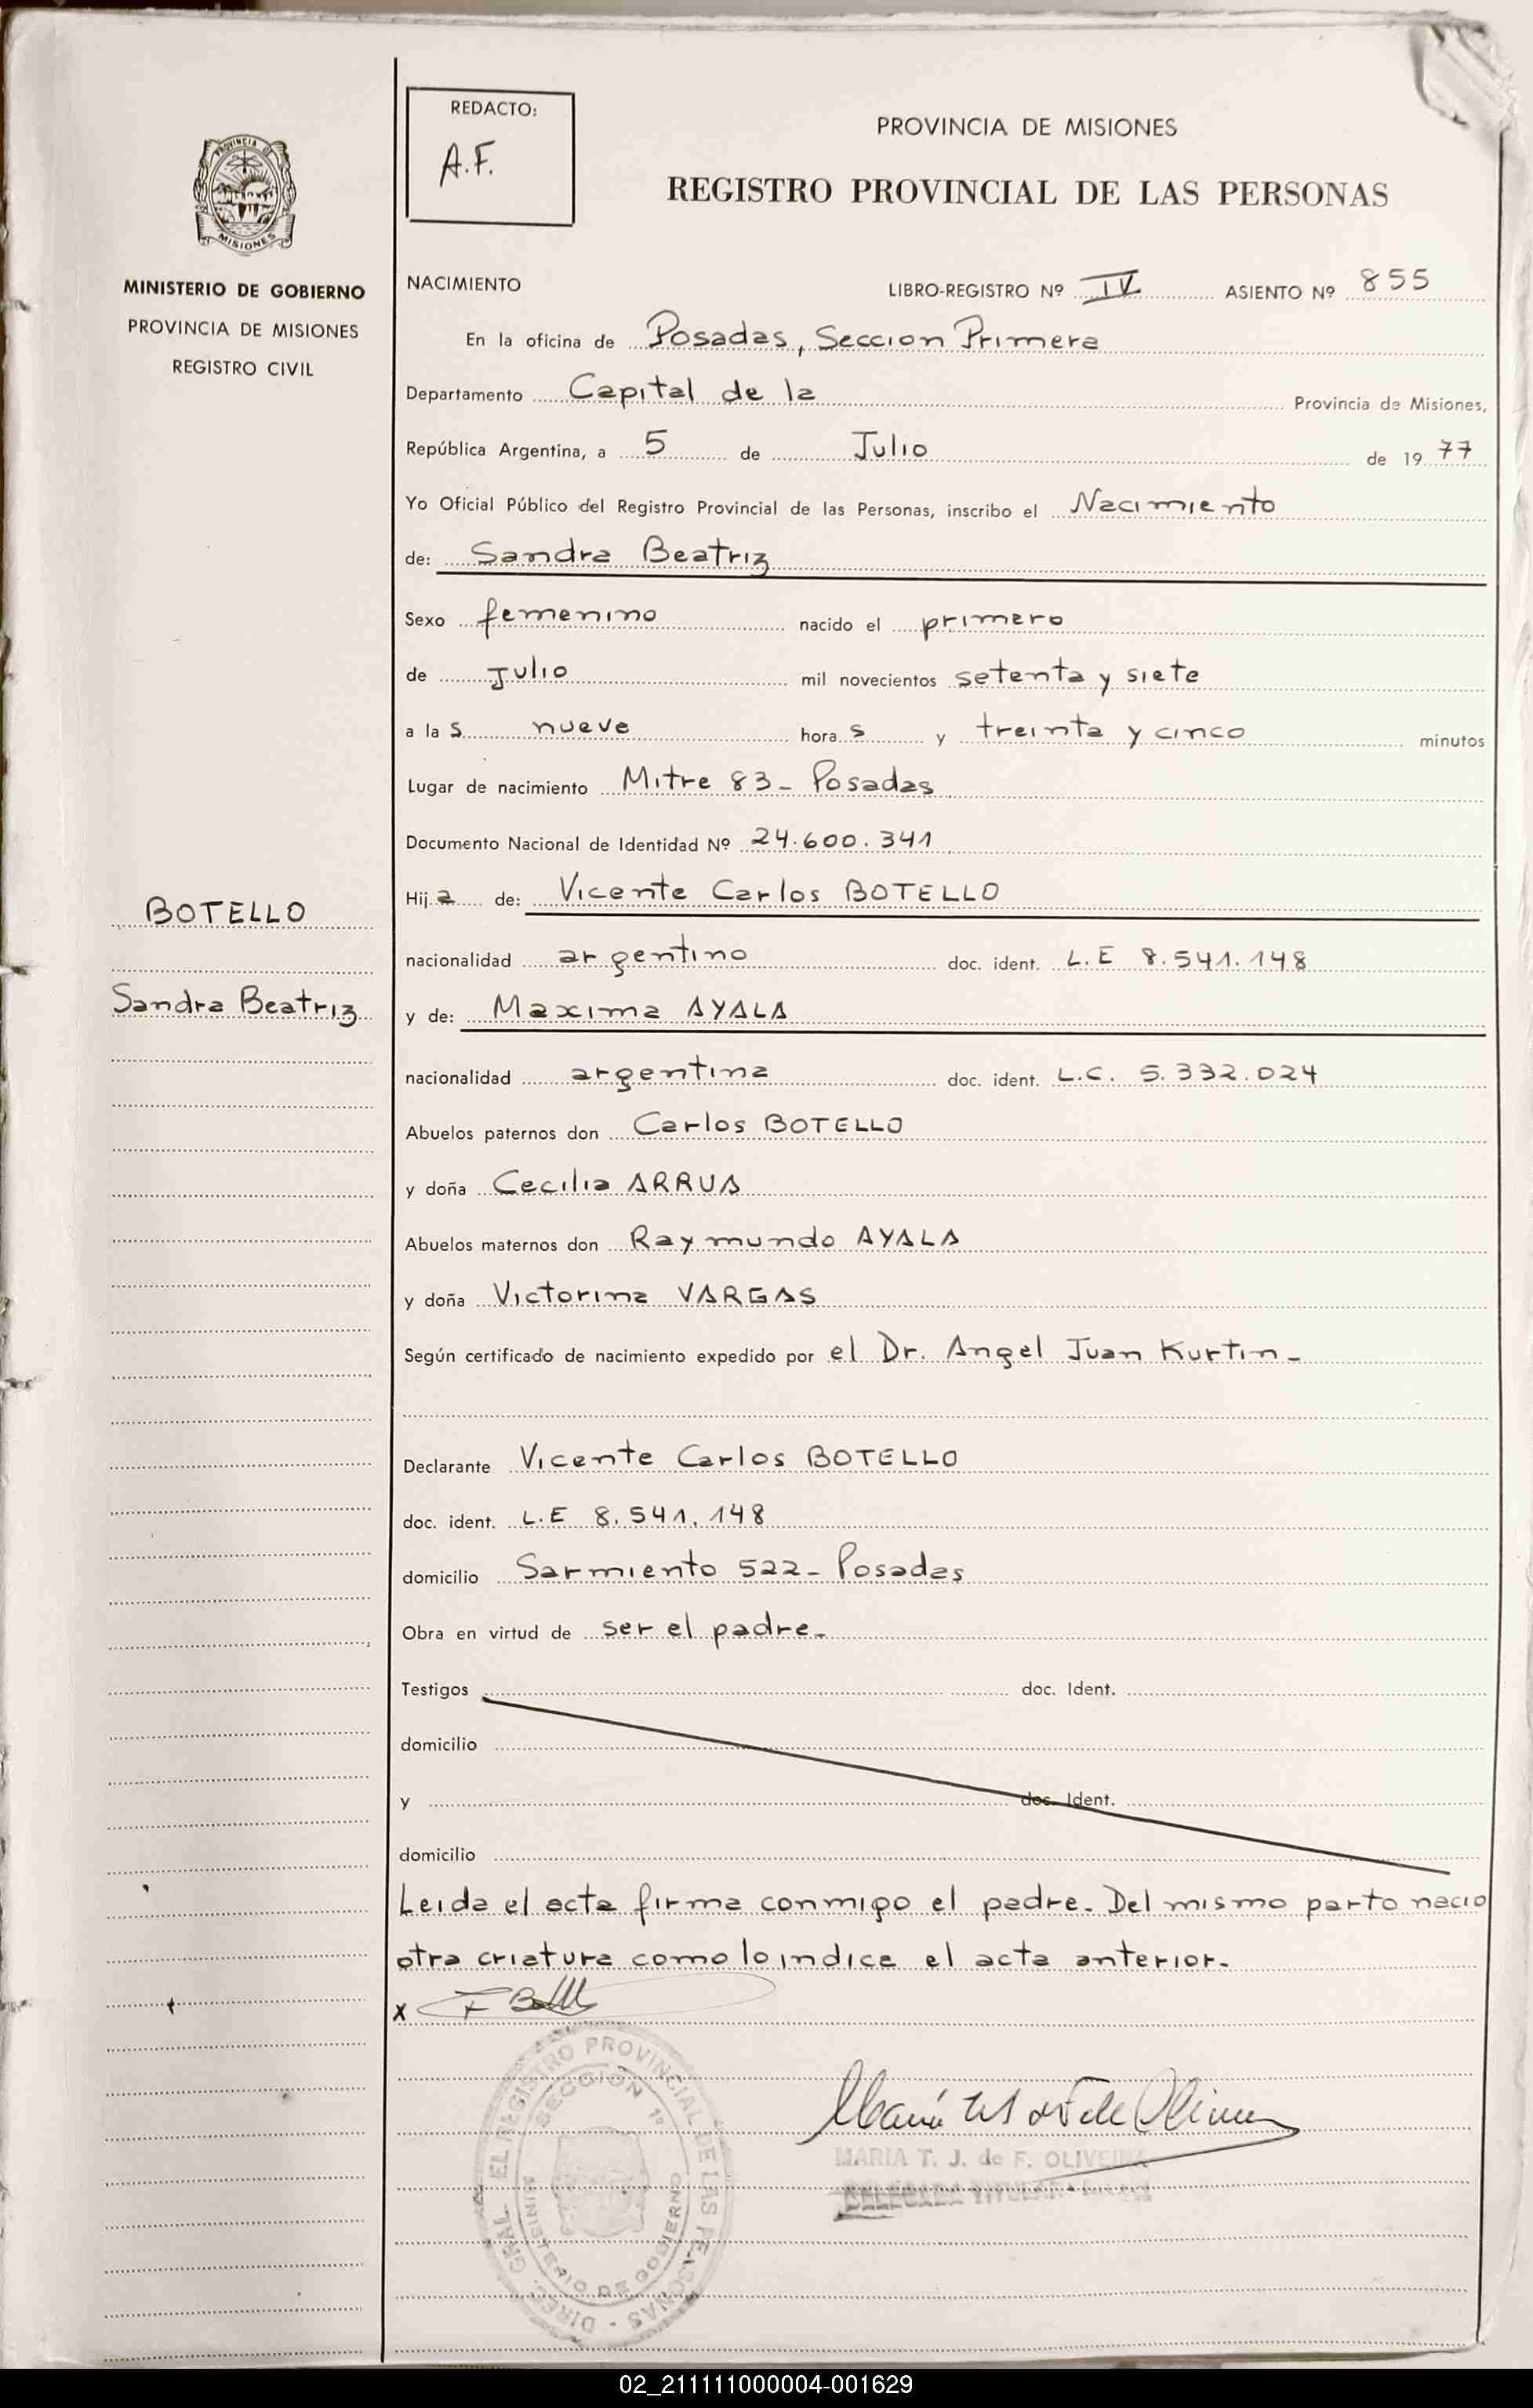 REDACTO:
A.F.
PROVINCIA DE MISIONES
REGISTRO PROVINCIAL DE LAS PERSONAS
PROVINCIA DE
MISIONES
MINISTERIO DE GOBIERNO
PROVINCIA DE MISIONES
REGISTRO CIVIL
NACIMIENTO LIBRO-REGISTRO Nº IV ASIENTO Nº 855
En la oficina de Posadas, Seccion Primera
Departamento Capital de la Provincia de Misiones,
República Argentina, a 5 de Julio de 1977
Yo Oficial Público del Registro Provincial de las Personas, inscribo el Nacimiento
de: Sandra Beatriz
Sexo femenino nacido el primero
de Julio mil novecientos setenta y siete
a las nueve horas y treinta y cinco minutos
Lugar de nacimiento Mitre 83- Posadas
Documento Nacional de Identidad Nº 24.600.341
Hija de: Vicente Carlos BOTELLO
BOTELLO
nacionalidad argentino doc. ident. L.E 8.541.148
Sandra Beatriz
y de: Maxima AYALA
nacionalidad argentina doc. ident. L.C. 5.332.024
Abuelos paternos don Carlos BOTELLO
y doña Cecilia ARRUA
Abuelos maternos don Raymundo AYALA
y doña Victorina VARGAS
Según certificado de nacimiento expedido por el Dr. Angel Juan Kurtin-
Declarante Vicente Carlos BOTELLO
doc. ident. L.E 8.541.148
domicilio Sarmiento 522- Posadas
Obra en virtud de ser el padre-
Testigos doc. Ident.
domicilio
y doc. Ident.
domicilio
Leida el acta firma conmigo el padre. Del mismo parto nacio
otra criatura como lo indica el acta anterior-
x
DIREC. GRAL. EL REGISTRO PROVINCIAL DE LAS PERSONAS
SECCION 1º
MINISTERIO DE GOBIERNO
MARIA T. J. de F. OLIVEIRA
DELEGADA TITULAR
02_211111000004-001629